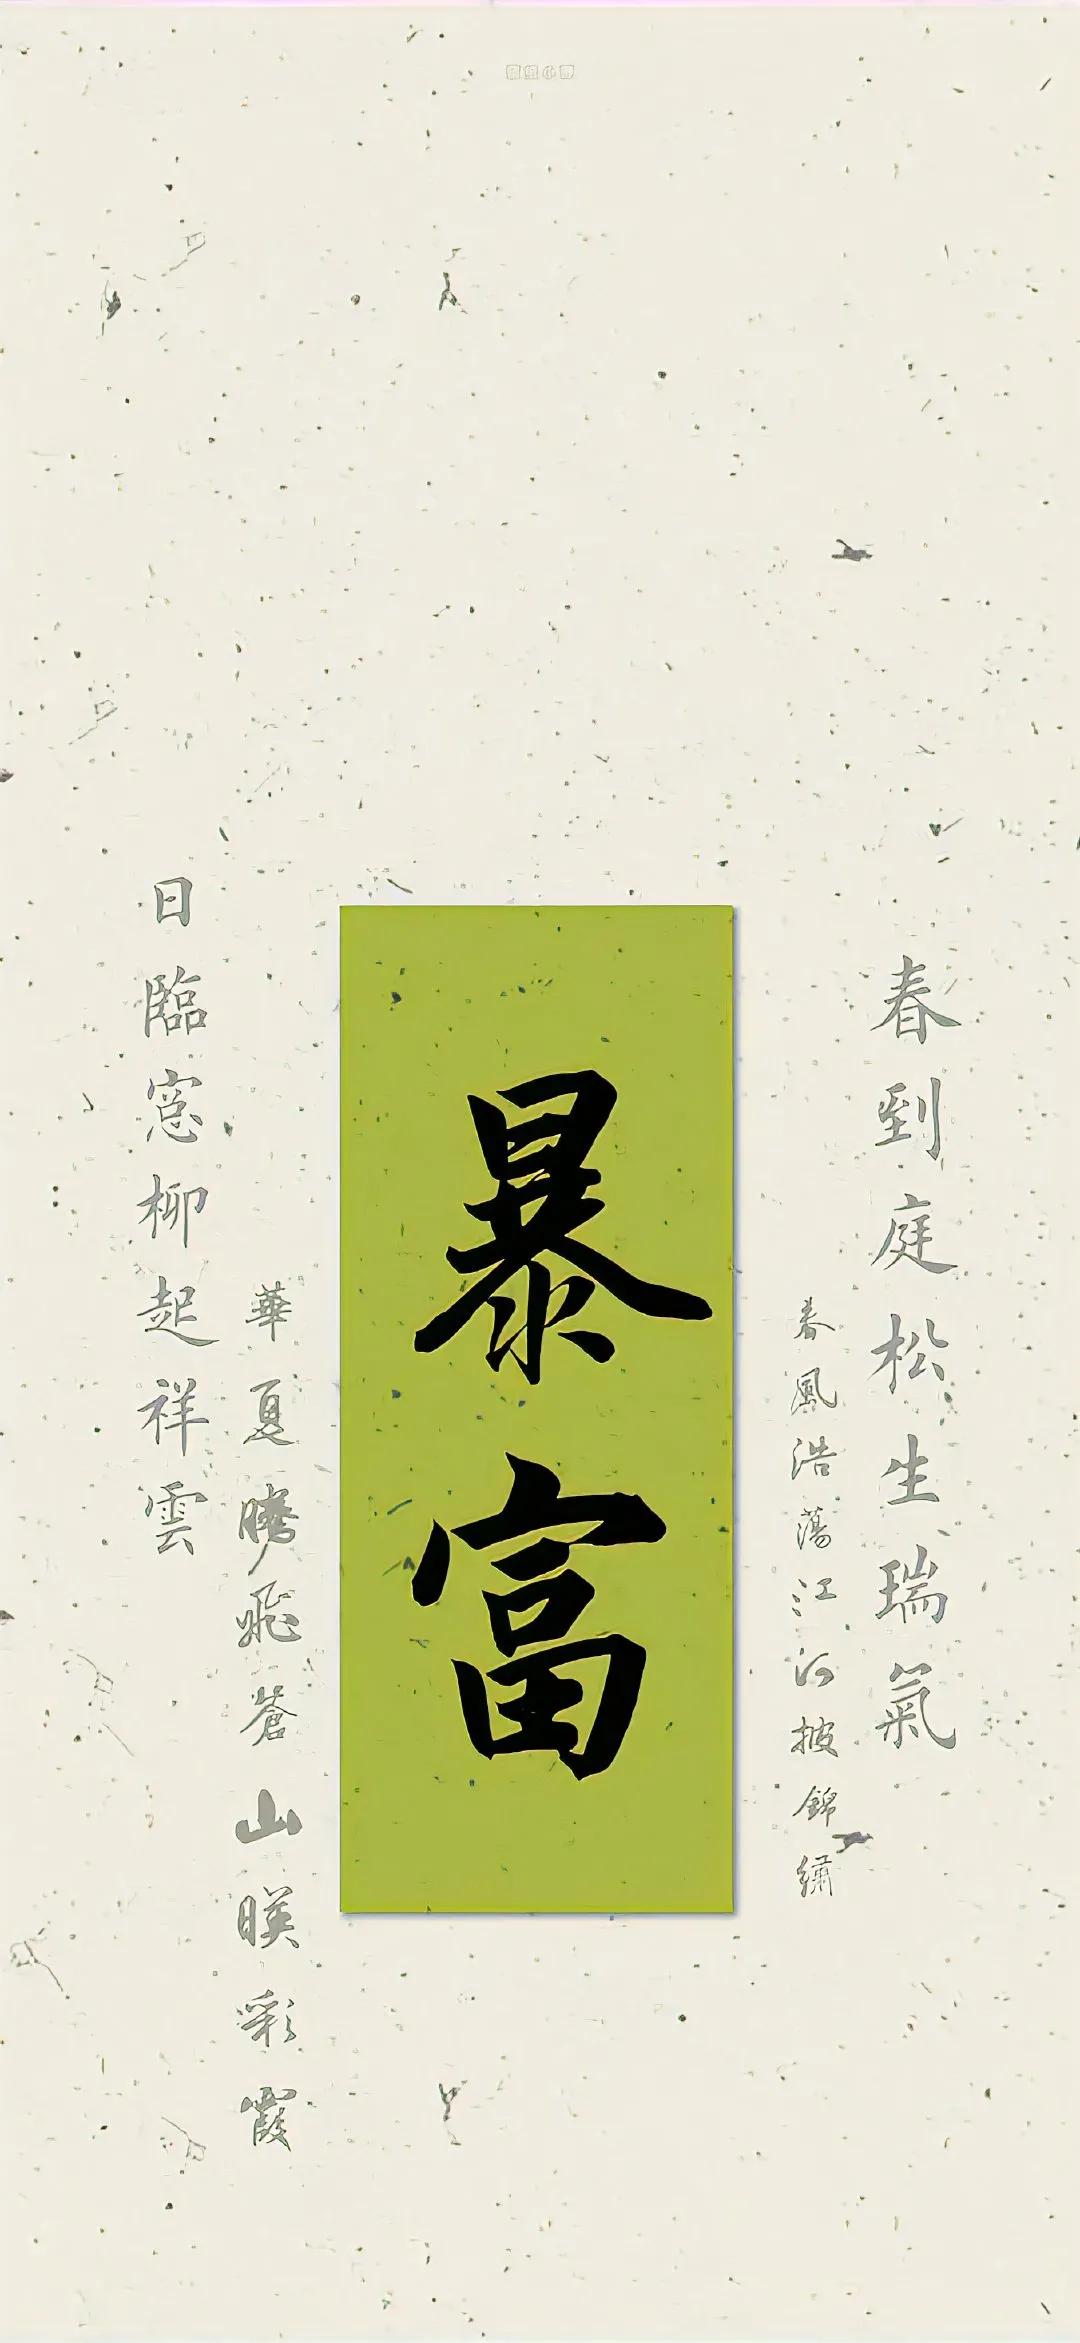 春到庭松生瑞氣
春風浩蕩江河披錦繡
暴富
華夏騰飛蒼山映彩霞
日臨窓柳起祥雲